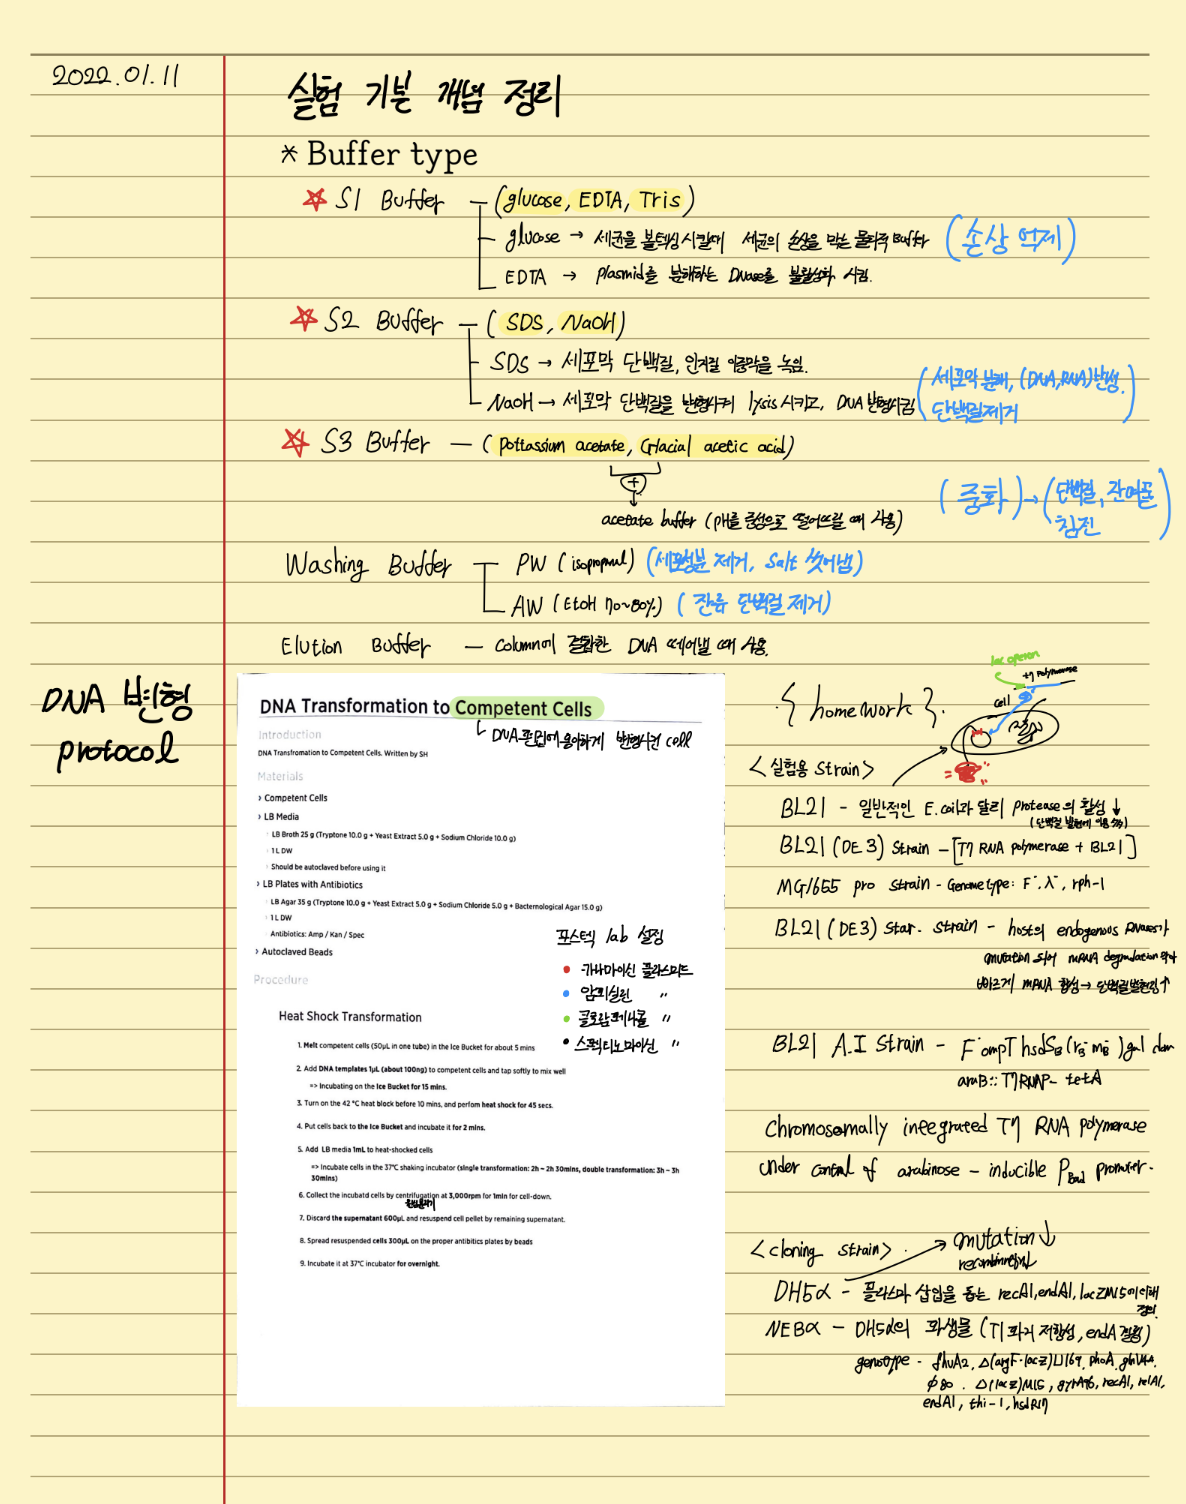 2022.01.11
실험 기본 개념 정리
* Buffer type
S1 Buffer — (glucose, EDTA, Tris)
glucose → 세균을 볼텍싱시킬때 세균의 손상을 막는 물리적 Buffer
(손상 억제)
EDTA → plasmid를 분해하는 DNase를 불활성화 시킴.
S2 Buffer — (SDS, NaOH)
SDS → 세포막 단백질, 인지질 이중막을 녹임.
NaOH → 세포막 단백질을 변형시켜 lysis 시키고, DNA 변형시킴
(세포막 분해, (DNA, RNA)변성.
단백질제거)
S3 Buffer — (pottassium acetate, Glacial acetic acid)
+
acetate buffer (pH를 중성으로 떨어뜨릴 때 사용)
(중화) → (단백질, 잔여물
침전)
Washing Buffer
PW (isopropanol) (세포성분 제거, salt 씻어냄)
AW (EtOH 70~80%) (잔류 단백질 제거)
Elution Buffer — column에 결합한 DNA 떼어낼 때 사용.
DNA 변형
protocol
DNA Transformation to Competent Cells
DNA 도입에 용이하게 변형시킨 cell
Introduction
DNA Transfromation to Competent Cells. Written by SH
Materials
› Competent Cells
› LB Media
LB Broth 25 g (Tryptone 10.0 g + Yeast Extract 5.0 g + Sodium Chloride 10.0 g)
1 L DW
Should be autoclaved before using it
› LB Plates with Antibiotics
LB Agar 35 g (Tryptone 10.0 g + Yeast Extract 5.0 g + Sodium Chloride 5.0 g + Bacternological Agar 15.0 g)
1 L DW
Antibiotics: Amp / Kan / Spec
› Autoclaved Beads
포스텍 lab 설정
• 카나마이신 플라스미드
• 암피실린 〃
• 클로람페니콜 〃
• 스펙티노마이신 〃
Procedure
Heat Shock Transformation
1. Melt competent cells (50μL in one tube) in the Ice Bucket for about 5 mins
2. Add DNA templates 1μL (about 100ng) to competent cells and tap softly to mix well
=> Incubating on the Ice Bucket for 15 mins.
3. Turn on the 42 °C heat block before 10 mins, and perfom heat shock for 45 secs.
4. Put cells back to the Ice Bucket and incubate it for 2 mins.
5. Add LB media 1mL to heat-shocked cells
=> Incubate cells in the 37℃ shaking incubator (single transformation: 2h – 2h 30mins, double transformation: 3h – 3h
30mins)
6. Collect the incubatd cells by centrifugation at 3,000rpm for 1min for cell-down.
원심분리기
7. Discard the supernatant 600μL and resuspend cell pellet by remaining supernatant.
8. Spread resuspended cells 300μL on the proper antibitics plates by beads
9. Incubate it at 37℃ incubator for overnight.
{homework}.
lac operon
T7 polymerase
cell
<실험용 strain>
BL21 - 일반적인 E.coli과 달리 protease의 활성↓
(단백질 발현에 이용)
BL21 (DE3) strain - [T7 RNA polymerase + BL21]
MG1655 pro strain - Genome type: F⁻, λ⁻, rph-1
BL21 (DE3) star. strain - host의 endogenous RNases가
mutation 되어 mRNA degradation
빠르게 mRNA 합성 → 단백질발현량↑
BL21 A.I strain - F⁻ ompT hsdSB (rB⁻ mB⁻) gal dcm
araB::T7RNAP-tetA
Chromosomally integrated T7 RNA polymerase
under control of arabinose - inducible PBad promoter.
<cloning strain>.
mutation↓
recombination↓
DH5α - 플라스미드 삽입을 돕는 recA1, endA1, lacZM15에 의해
정의.
NEBα - DH5α의 파생물 (T1 파지 저항성, endA 결핍)
genotype - fhuA2, Δ(argF-lacZ)U169, phoA, glnV44,
φ80. Δ(lacZ)M15, gyrA96, recA1, relA1,
endA1, thi-1, hsdR17